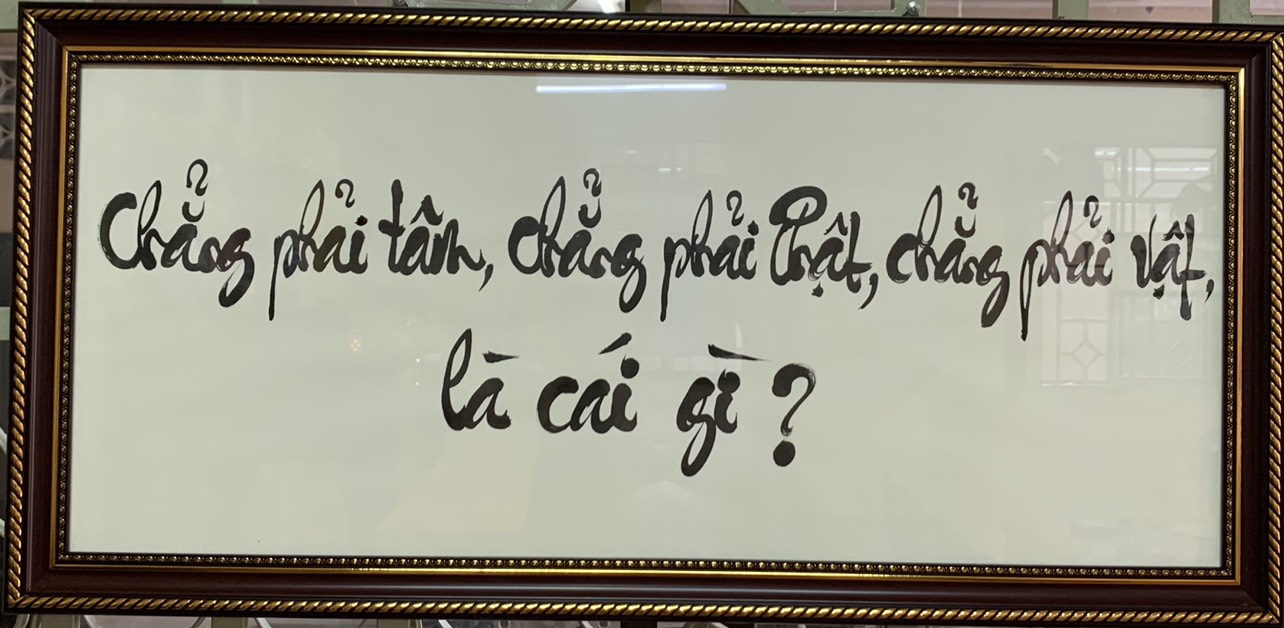 Chẳng phải tâm, chẳng phải Phật, chẳng phải vật,
là cái gì?